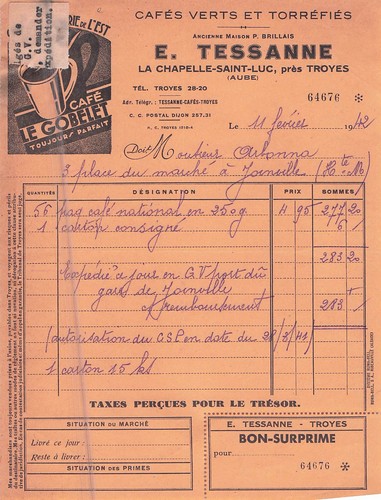 CAFÉS VERTS ET TORRÉFIÉS
ANCIENNE MAISON P. BRILLAIS
E. TESSANNE
LA CHAPELLE-SAINT-LUC, près TROYES
(AUBE)
TÉL. TROYES 28-20
Adr. Télégr. : TESSANNE-CAFÉS-TROYES
C. C. POSTAL DIJON 257.31
R. C. TROYES 1518-4
64676 *
RIE DE L'EST
gés de
G.V.
, demander
expédition.
CAFÉ
LE GOBELET
TOUJOURS PARFAIT
Le 11 février 1942
Doit Monsieur Arbonna
3 place du marché à Joinville (Hte-M)
QUANTITÉS DÉSIGNATION PRIX SOMMES
56 paq café national en 250g 4 95 277 20
1 carton consigné 6
283 20
Expédié ce jour en G.V. port dû
gare de Joinville
Remboursement 283
(autorisation du CSP en date du 28/3/41)
1 carton 15 ks
TAXES PERÇUES POUR LE TRÉSOR.
SITUATION DU MARCHÉ
Livré ce jour :
Reste à livrer :
SITUATION DES PRIMES
E. TESSANNE - TROYES
BON-SURPRIME
pour
64676 *